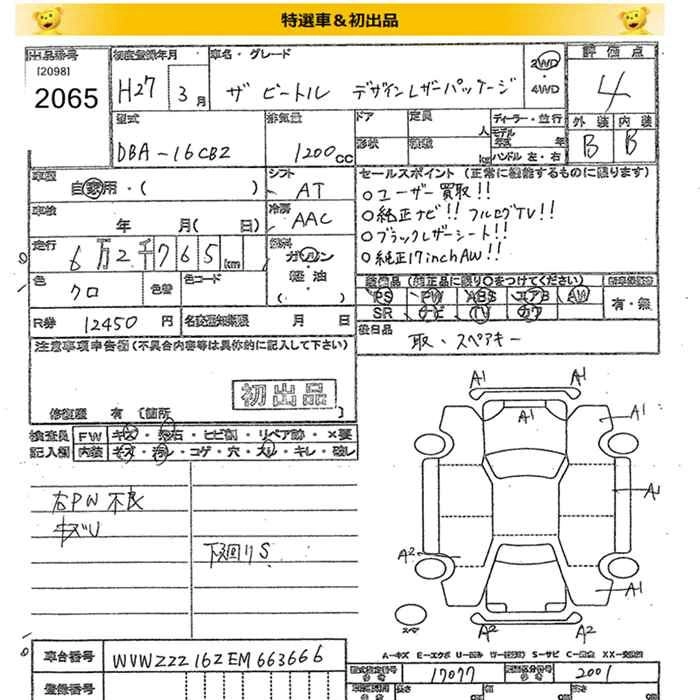 特選車＆初出品
出品番号 [2098] 2065
初度登録年月 H27年 3月
車名・グレード ザ ビートル デザインレザーパッケージ
2WD・4WD
評価点 4
外装 B 内装 B
型式 DBA-16CBZ
排気量 1200cc
ドア 形状
定員 人
積載 kg
ディーラー・並行
モデル年式 年
ハンドル 左・右
車歴 自家用・( )
シフト AT
冷房 AAC
車検 年 月( 日)
走行 6万2千765km
燃料 ガソリン 軽・油 ( )
色 クロ
色替
色コード
R券 12450円
名変通知期限 月 日
セールスポイント (正常に機能するものに限ります)
○ユーザー買取!!
○純正ナビ!! フルセグTV!!
○ブラックレザーシート!!
○純正17inchAW!!
装備品 (純正品に限り○をつけてください)
PS PW ABS エアB AW
SR ナビ TV カワ
有・無
後日品 取、スペアキー
注意事項申告欄(不具合内容等は具体的に記入して下さい)
初出品
修復歴 有 [箇所 ]
検査員記入欄
FW キズ・飛石・ヒビ割・リペア跡・×要
内装 キズ・汚レ・コゲ・穴・スレ・キレ・破レ
右PW不良
キズU
下廻りS
A1 A1
A1
A1
A1
A2
A1
スペア
A2 A2
A-キズ E-エクボ U-凹み W-(波板) S-サビ C-腐蝕 XX-交換済
車台番号 WVWZZZ16ZEM663666
登録番号
型式指定番号 17077
類別区分番号 2001
長さ cm 幅 cm 高さ cm